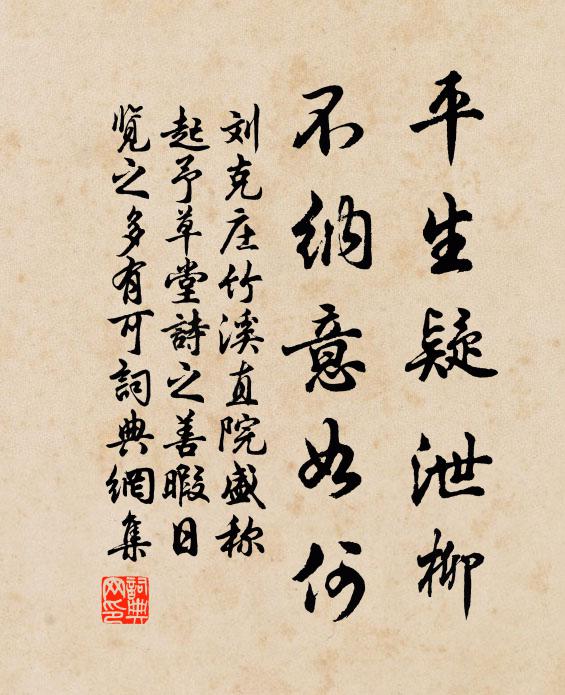 平生疑泄柳
不纳意如何
刘克庄竹溪直院盛称
起予草堂詩之善暇日
览之多有可詞典網集
詞典网印